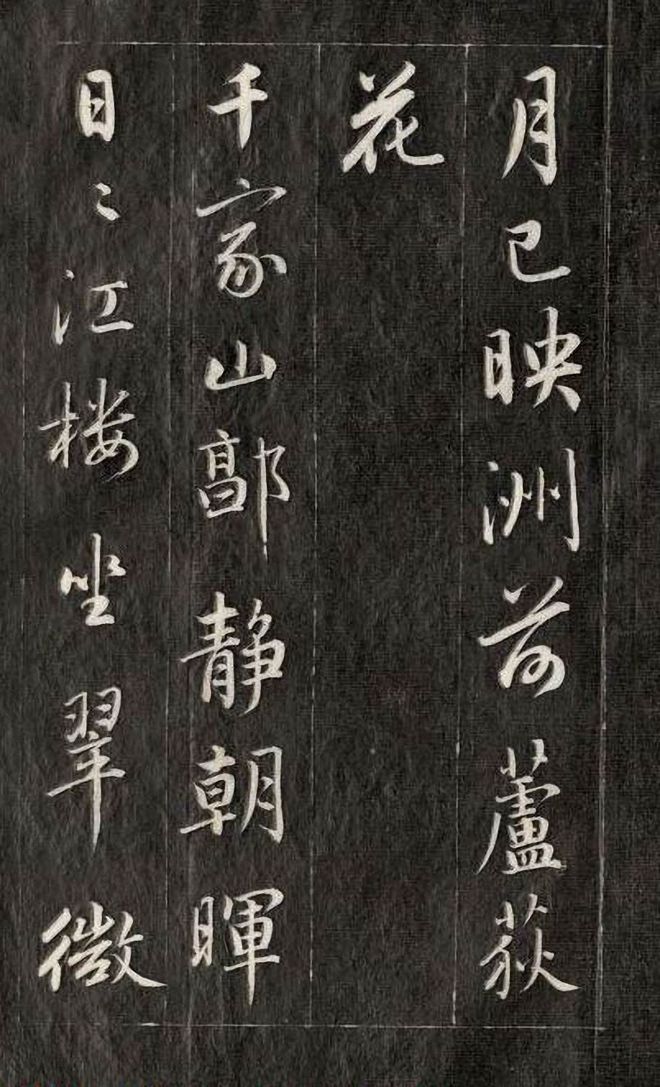 月已映洲前蘆荻
花
千家山郭静朝暉
日〻江楼坐翠微